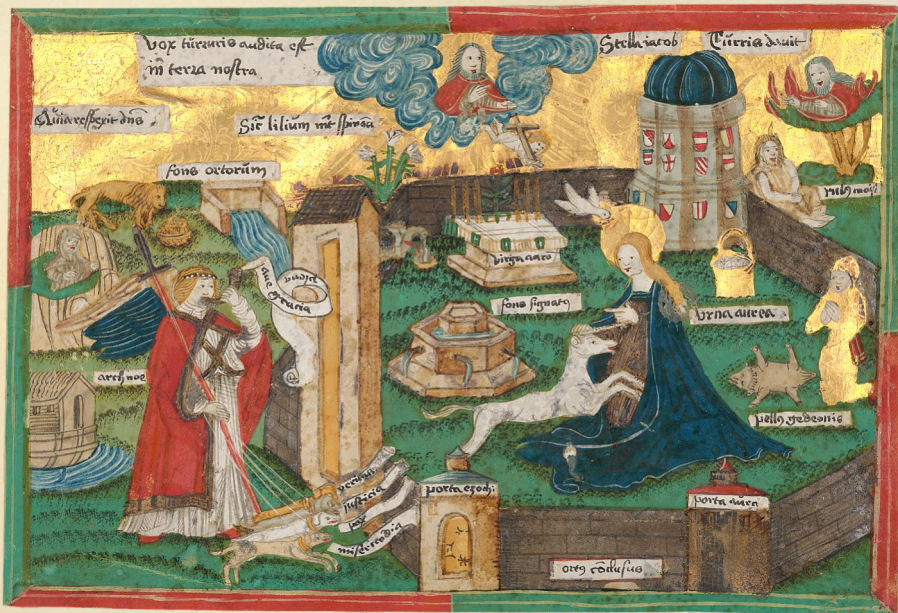 Vox turturis audita est
in terra nostra
Stella iacob
Turris davit
Quia respexit dns
Sic lilium int spinas
fons ortorum
rub moisi
ave
gracia
virga aaro
fons signat
urna aurea
arch noe
pell gedeonis
veritas
justicia
pax
misericordia
porta ezechi
porta aurea
ort conclusus